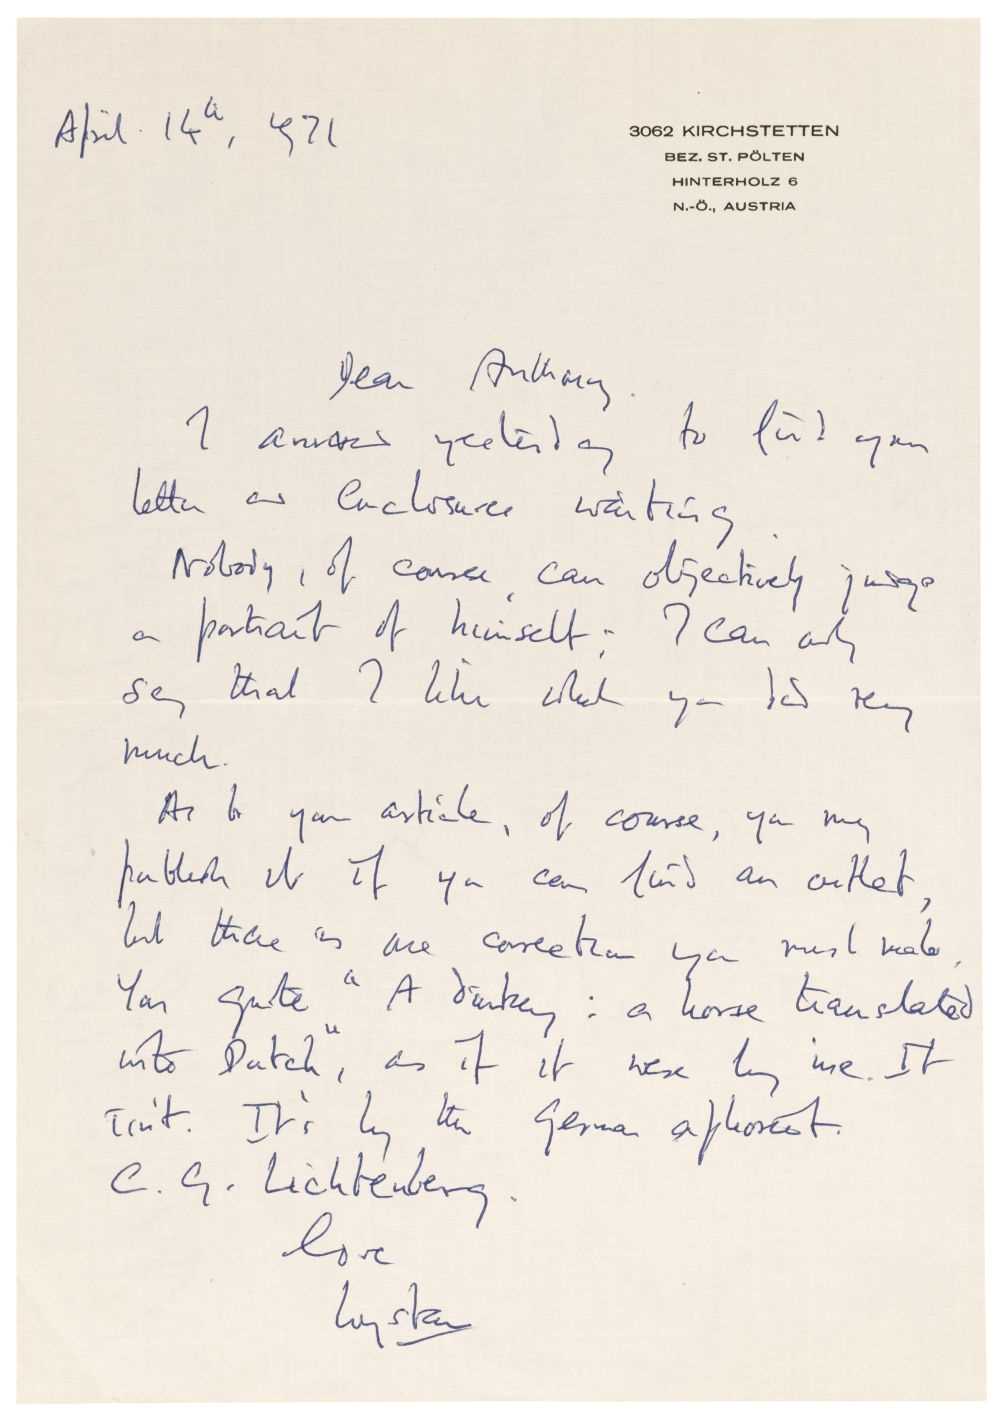 April 14th, 1971
3062 KIRCHSTETTEN
BEZ. ST. PÖLTEN
HINTERHOLZ 6
N.-Ö., AUSTRIA
Dear Anthony.
I arrived yesterday to find your
letter and enclosures waiting.
Nobody, of course, can objectively judge
a portrait of himself; I can only
say that I like what you did very
much.
As to your article, of course, you may
publish it if you can find an outlet,
but there is one correction you must make.
You quote "A donkey: a horse translated
into Dutch", as if it were by me. It
isn't. It's by the German aphorist.
C. G. Lichtenberg.
love
Wystan